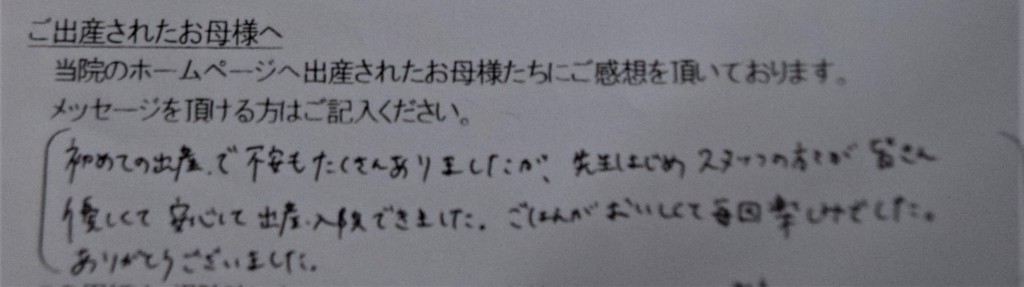 ご出産されたお母様へ
当院のホームページへ出産されたお母様たちにご感想を頂いております。
メッセージを頂ける方はご記入ください。
初めての出産で不安もたくさんありましたが、先生はじめスタッフの方々が皆さん
優しくて安心して出産、入院できました。ごはんがおいしくて毎回楽しみでした。
ありがとうございました。